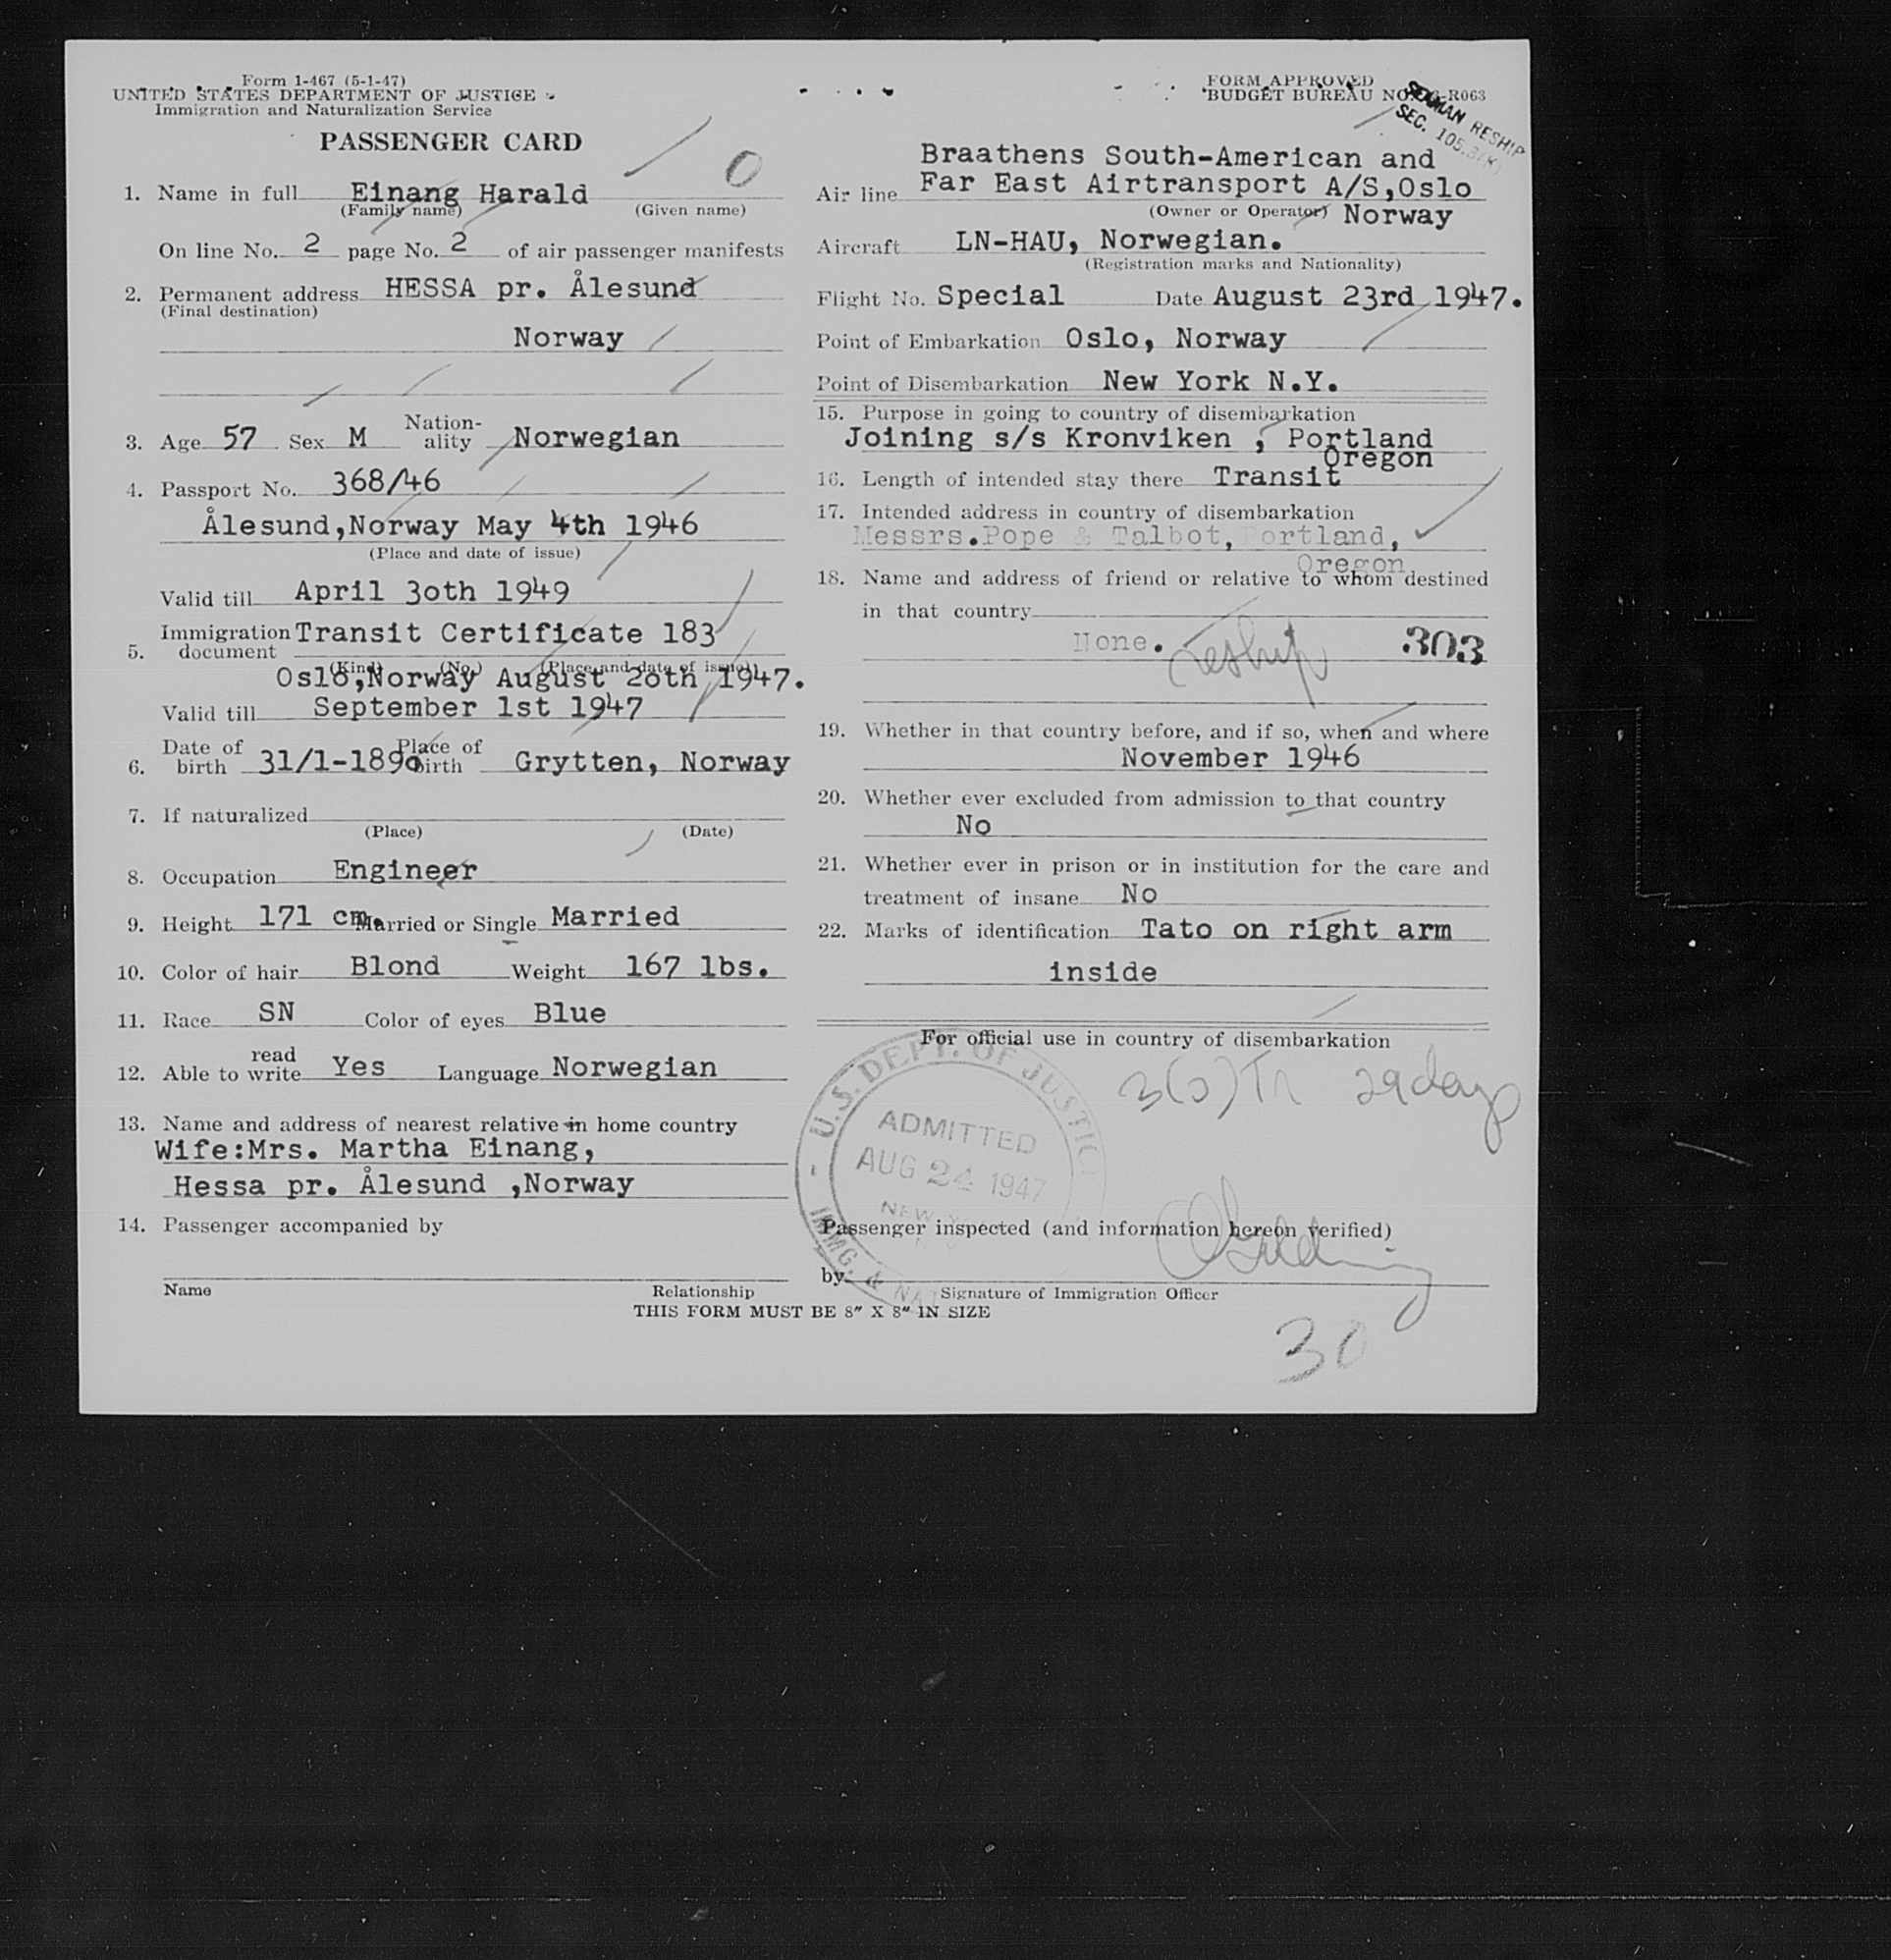 Form 1-467 (5-1-47)
UNITED STATES DEPARTMENT OF JUSTICE
Immigration and Naturalization Service
PASSENGER CARD
0
1. Name in full Einang Harald
(Family name) (Given name)
On line No. 2 page No. 2 of air passenger manifests
2. Permanent address HESSA pr. Ålesund
(Final destination)
Norway
3. Age 57 Sex M Nation-
ality Norwegian
4. Passport No. 368/46
Ålesund,Norway May 4th 1946
(Place and date of issue)
Valid till April 3oth 1949
5. Immigration
document Transit Certificate 183
(Kind) (No.) (Place and date of issue)
Oslo,Norway August 2oth 1947.
Valid till September 1st 1947
6. Date of
birth 31/1-189o Place of
birth Grytten, Norway
7. If naturalized
(Place) (Date)
8. Occupation Engineer
9. Height 171 cm. Married or Single Married
10. Color of hair Blond Weight 167 lbs.
11. Race SN Color of eyes Blue
12. Able to read
write Yes Language Norwegian
13. Name and address of nearest relative in home country
Wife:Mrs. Martha Einang,
Hessa pr. Ålesund ,Norway
14. Passenger accompanied by
Name Relationship
FORM APPROVED
BUDGET BUREAU NO. R063
SEAMAN RESHIP
SEC. 105.
Braathens South-American and
Air line Far East Airtransport A/S,Oslo
(Owner or Operator) Norway
Aircraft LN-HAU, Norwegian.
(Registration marks and Nationality)
Flight No. Special Date August 23rd 1947.
Point of Embarkation Oslo, Norway
Point of Disembarkation New York N.Y.
15. Purpose in going to country of disembarkation
Joining s/s Kronviken , Portland
Oregon
16. Length of intended stay there Transit
17. Intended address in country of disembarkation
Messrs.Pope & Talbot, Portland,
Oregon
18. Name and address of friend or relative to whom destined
in that country
None. reship 303
19. Whether in that country before, and if so, when and where
November 1946
20. Whether ever excluded from admission to that country
No
21. Whether ever in prison or in institution for the care and
treatment of insane No
22. Marks of identification Tato on right arm
inside
For official use in country of disembarkation
29 days
U.S. DEPT. OF JUSTICE
ADMITTED
AUG 24 1947
NEW
IMMG. & NAT
Passenger inspected (and information hereon verified)
by
Signature of Immigration Officer
THIS FORM MUST BE 8" X 8" IN SIZE
30